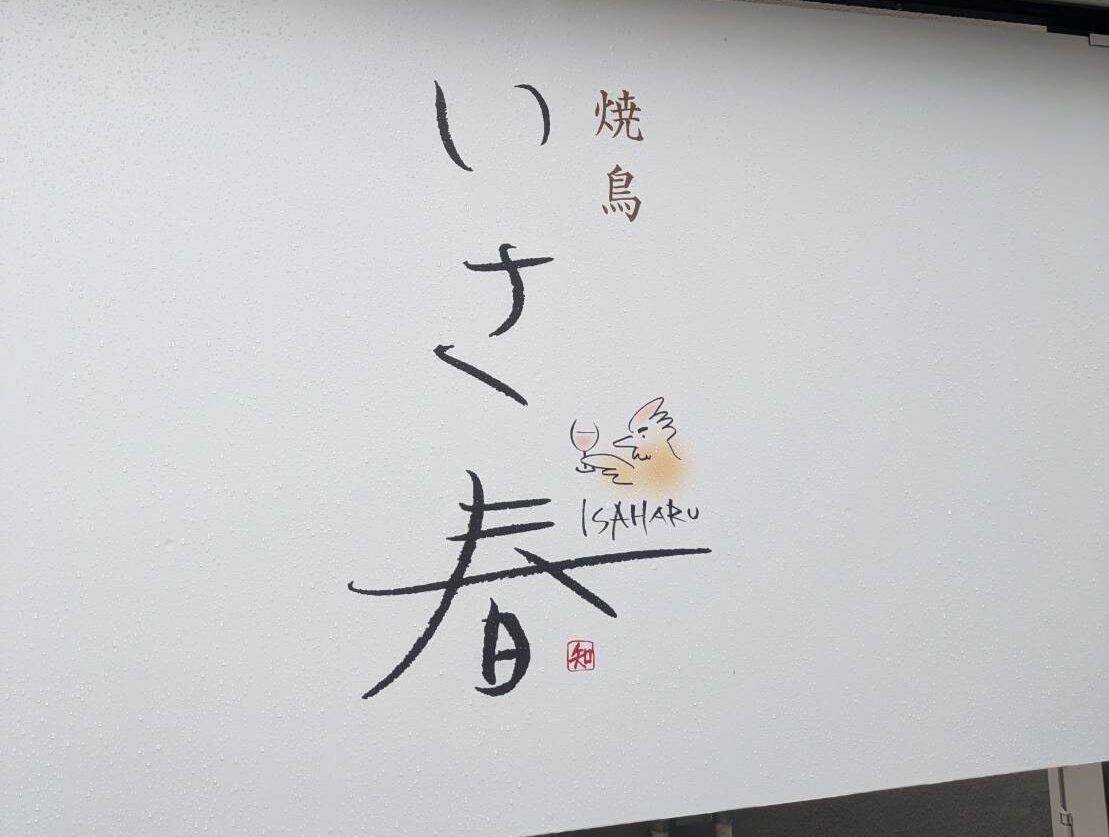 焼鳥
いさ春
ISAHARU
知